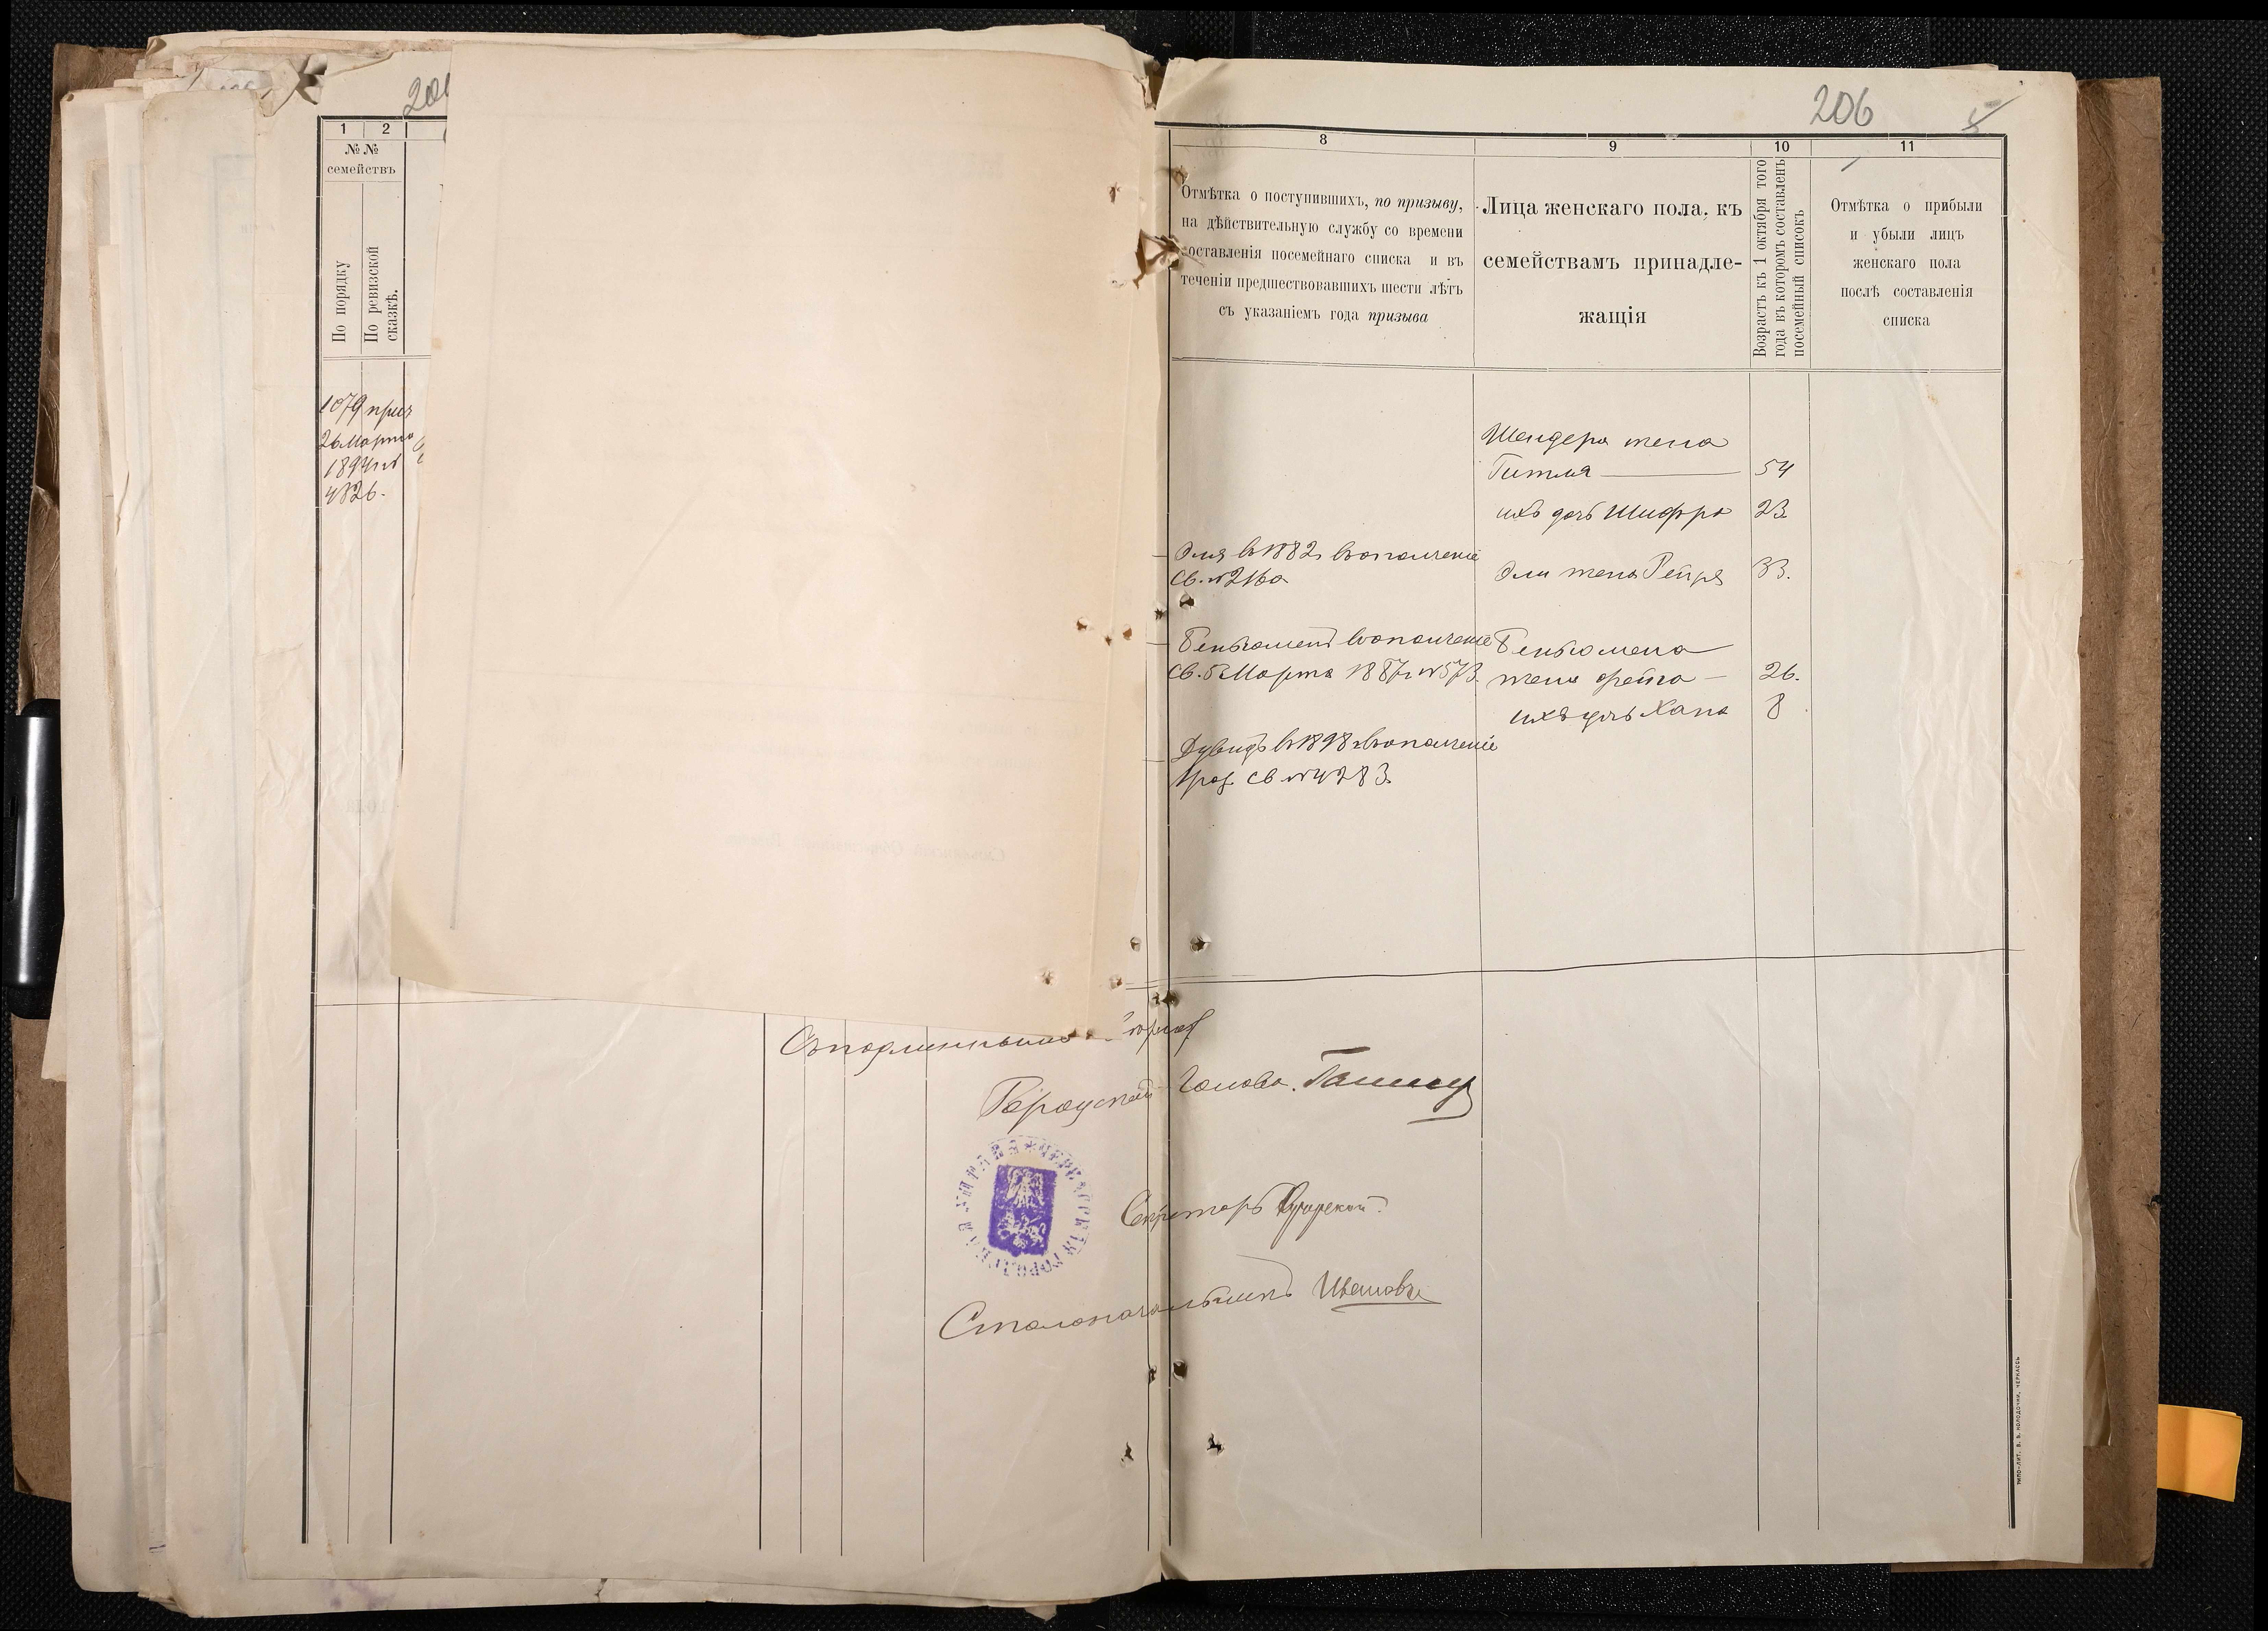 206
1
2
№ №
семействъ
По порядку
По ревизской
сказкѣ.
1079
26 Марта
4826.
8
9
10
11
Отмѣтка о поступившихъ, по призыву,
на дѣйствительную службу со времени
составленія посемейнаго списка и въ
теченіи предшествовавшихъ шести лѣтъ
съ указаніемъ года призыва
Лица женскаго пола, къ
семействамъ принадле-
жащія
Возрастъ къ 1 октября того
года въ которомъ составленъ
посемейный списокъ
Отмѣтка о прибыли
и убыли лицъ
женскаго пола
послѣ составленія
списка
Шендера жена
Гитля 54
ихъ дочь Шифра 23
Эля въ 1882 г. въ ополченіе
св. №
Эли жена 33.
Беньюменъ въ ополченіе
св. 5 Марта 1887 г. № 573.
Беньюмена
жена Фейга 26.
ихъ дочь Хана 8
Дувидъ въ 1898 г. въ ополченіе
св. № 4283
Съ подлиннымъ
Городской Голова
Секретарь
Столоначальникъ Ивановъ
ЧЕРКАССКАЯ ГОРОДСКАЯ УПРАВА
ТИПО-ЛИТ. В. Б. КОЛОДОЧКИ, ЧЕРКАССЫ